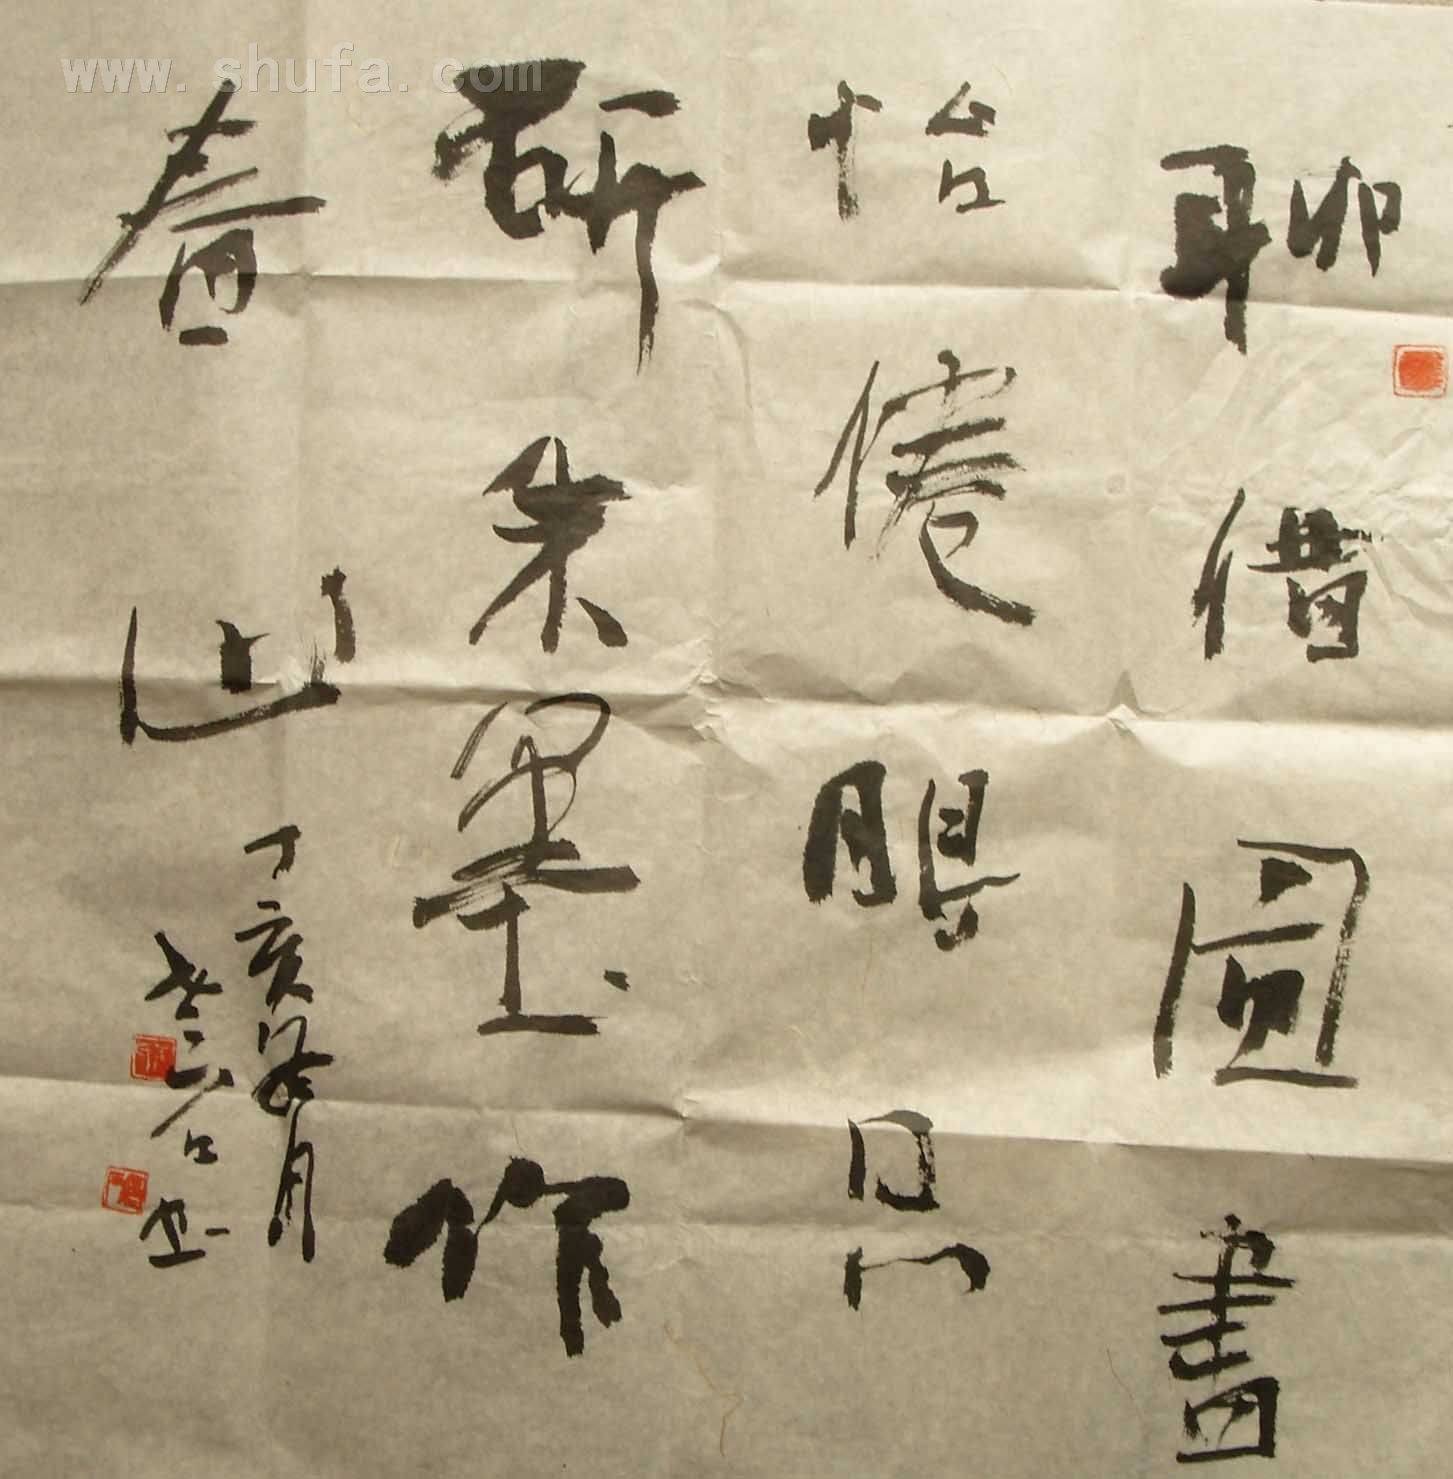 www.shufa.com
聊借圖書
怡倦眼只
研朱墨作
春山
丁亥月
石书